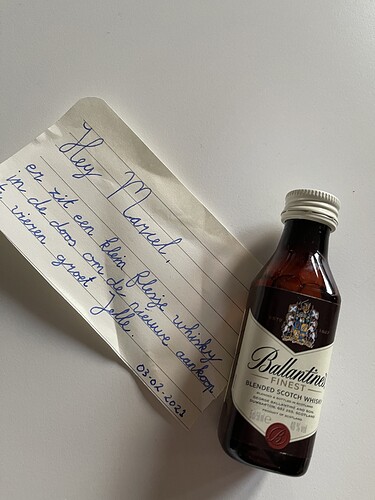 Hey Marcel,
er zit een klein flesje whisky
in de doos om de nieuwe aankoop
vieren groet Jelle.
03.02.2023
Ballantine's
FINEST
BLENDED SCOTCH WHISKY
40%